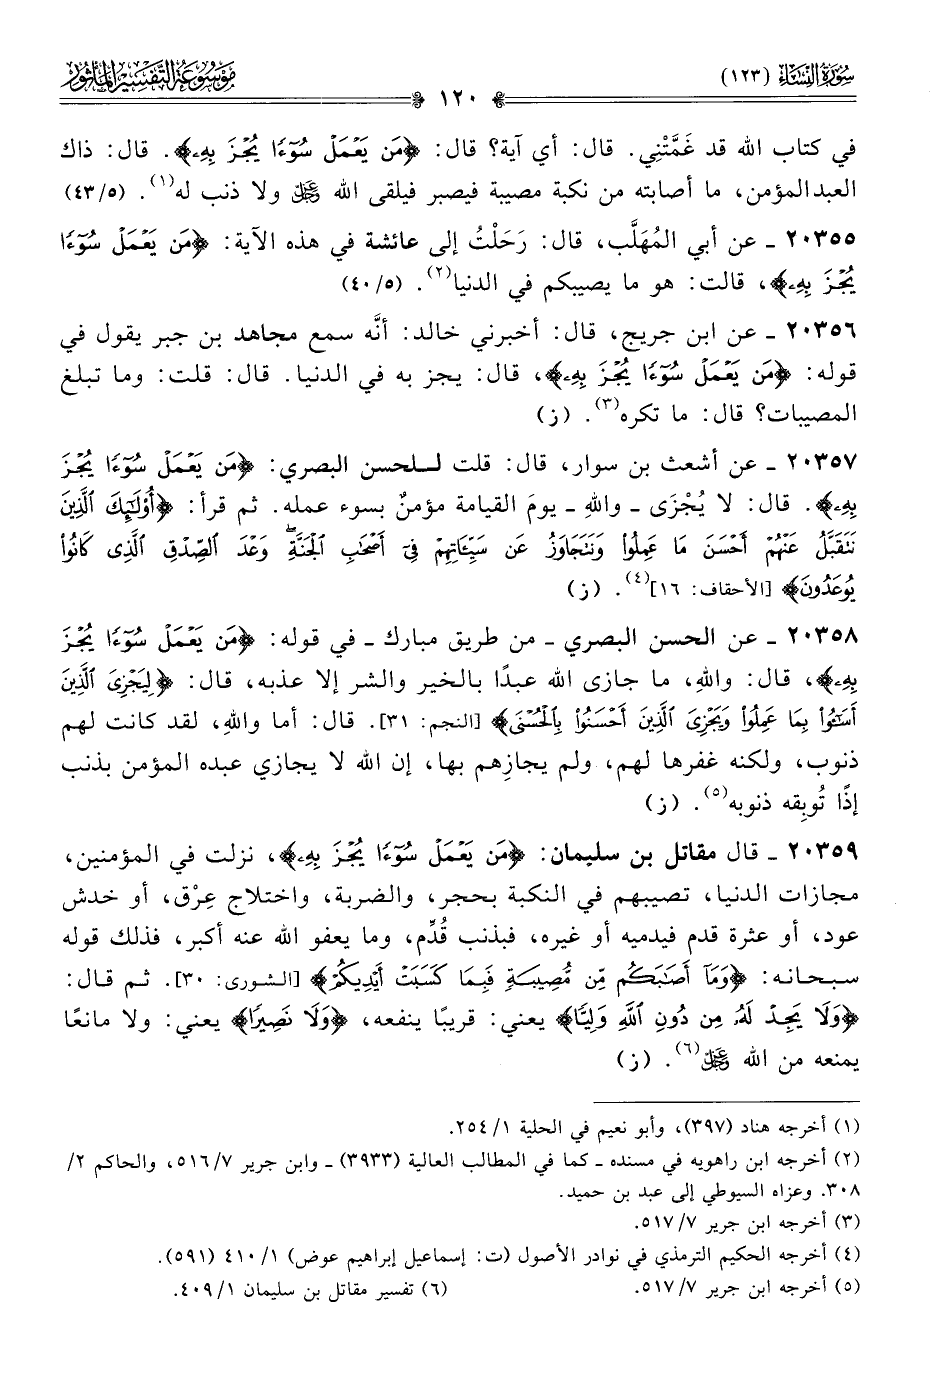 سورة النساء (١٢٣)
موسوعة التفسير المأثور
١٢٠
في كتاب الله قد غَمَّتْنِي. قال: أي آية؟ قال: ﴿مَن يَعْمَلْ سُوٓءًا يُجْزَ بِهِۦ﴾. قال: ذاك
العبد المؤمن، ما أصابته من نكبة مصيبة فيصبر فيلقى الله عز وجل ولا ذنب له(١). (٤٣/٥)
٢٠٣٥٥ ـ عن أبي المُهَلَّب، قال: رَحَلْتُ إلى عائشة في هذه الآية: ﴿مَن يَعْمَلْ سُوٓءًا
يُجْزَ بِهِۦ﴾، قالت: هو ما يصيبكم في الدنيا(٢). (٤٠/٥)
٢٠٣٥٦ ـ عن ابن جريج، قال: أخبرني خالد: أنَّه سمع مجاهد بن جبر يقول في
قوله: ﴿مَن يَعْمَلْ سُوٓءًا يُجْزَ بِهِۦ﴾، قال: يجز به في الدنيا. قال: قلت: وما تبلغ
المصيبات؟ قال: ما تكره(٣). (ز)
٢٠٣٥٧ ـ عن أشعث بن سوار، قال: قلت للحسن البصري: ﴿مَن يَعْمَلْ سُوٓءًا يُجْزَ
بِهِۦ﴾. قال: لا يُجْزَى ـ واللهِ ـ يومَ القيامة مؤمنٌ بسوء عمله. ثم قرأ: ﴿أُوْلَٰٓئِكَ ٱلَّذِينَ
نَتَقَبَّلُ عَنْهُمْ أَحْسَنَ مَا عَمِلُوا۟ وَنَتَجَاوَزُ عَن سَيِّـَٔاتِهِمْ فِىٓ أَصْحَٰبِ ٱلْجَنَّةِۖ وَعْدَ ٱلصِّدْقِ ٱلَّذِى كَانُوا۟
يُوعَدُونَ﴾ [الأحقاف: ١٦](٤). (ز)
٢٠٣٥٨ ـ عن الحسن البصري ـ من طريق مبارك ـ في قوله: ﴿مَن يَعْمَلْ سُوٓءًا يُجْزَ
بِهِۦ﴾، قال: واللهِ، ما جازى الله عبدًا بالخير والشر إلا عذبه، قال: ﴿لِيَجْزِىَ ٱلَّذِينَ
أَسَٰٓـُٔوا۟ بِمَا عَمِلُوا۟ وَيَجْزِىَ ٱلَّذِينَ أَحْسَنُوا۟ بِٱلْحُسْنَى﴾ [النجم: ٣١]. قال: أما واللهِ، لقد كانت لهم
ذنوب، ولكنه غفرها لهم، ولم يجازِهم بها، إن الله لا يجازي عبده المؤمن بذنب
إذًا تُوبِقه ذنوبه(٥). (ز)
٢٠٣٥٩ ـ قال مقاتل بن سليمان: ﴿مَن يَعْمَلْ سُوٓءًا يُجْزَ بِهِۦ﴾، نزلت في المؤمنين،
مجازات الدنيا، تصيبهم في النكبة بحجر، والضربة، واختلاج عِرْق، أو خدش
عود، أو عثرة قدم فيدميه أو غيره، فبذنب قُدِّم، وما يعفو الله عنه أكبر، فذلك قوله
سبحانه: ﴿وَمَآ أَصَٰبَكُم مِّن مُّصِيبَةٍ فَبِمَا كَسَبَتْ أَيْدِيكُمْ﴾ [الشورى: ٣٠]. ثم قال:
﴿وَلَا يَجِدْ لَهُۥ مِن دُونِ ٱللَّهِ وَلِيًّا﴾ يعني: قريبًا ينفعه، ﴿وَلَا نَصِيرًا﴾ يعني: ولا مانعًا
يمنعه من الله عز وجل(٦). (ز)
(١) أخرجه هناد (٣٩٧)، وأبو نعيم في الحلية ٢٥٤/١.
(٢) أخرجه ابن راهويه في مسنده ـ كما في المطالب العالية (٣٩٣٣) ـ وابن جرير ٥١٦/٧، والحاكم ٢/
٣٠٨. وعزاه السيوطي إلى عبد بن حميد.
(٣) أخرجه ابن جرير ٥١٧/٧.
(٤) أخرجه الحكيم الترمذي في نوادر الأصول (ت: إسماعيل إبراهيم عوض) ٤١٠/١ (٥٩١).
(٥) أخرجه ابن جرير ٥١٧/٧.
(٦) تفسير مقاتل بن سليمان ٤٠٩/١.